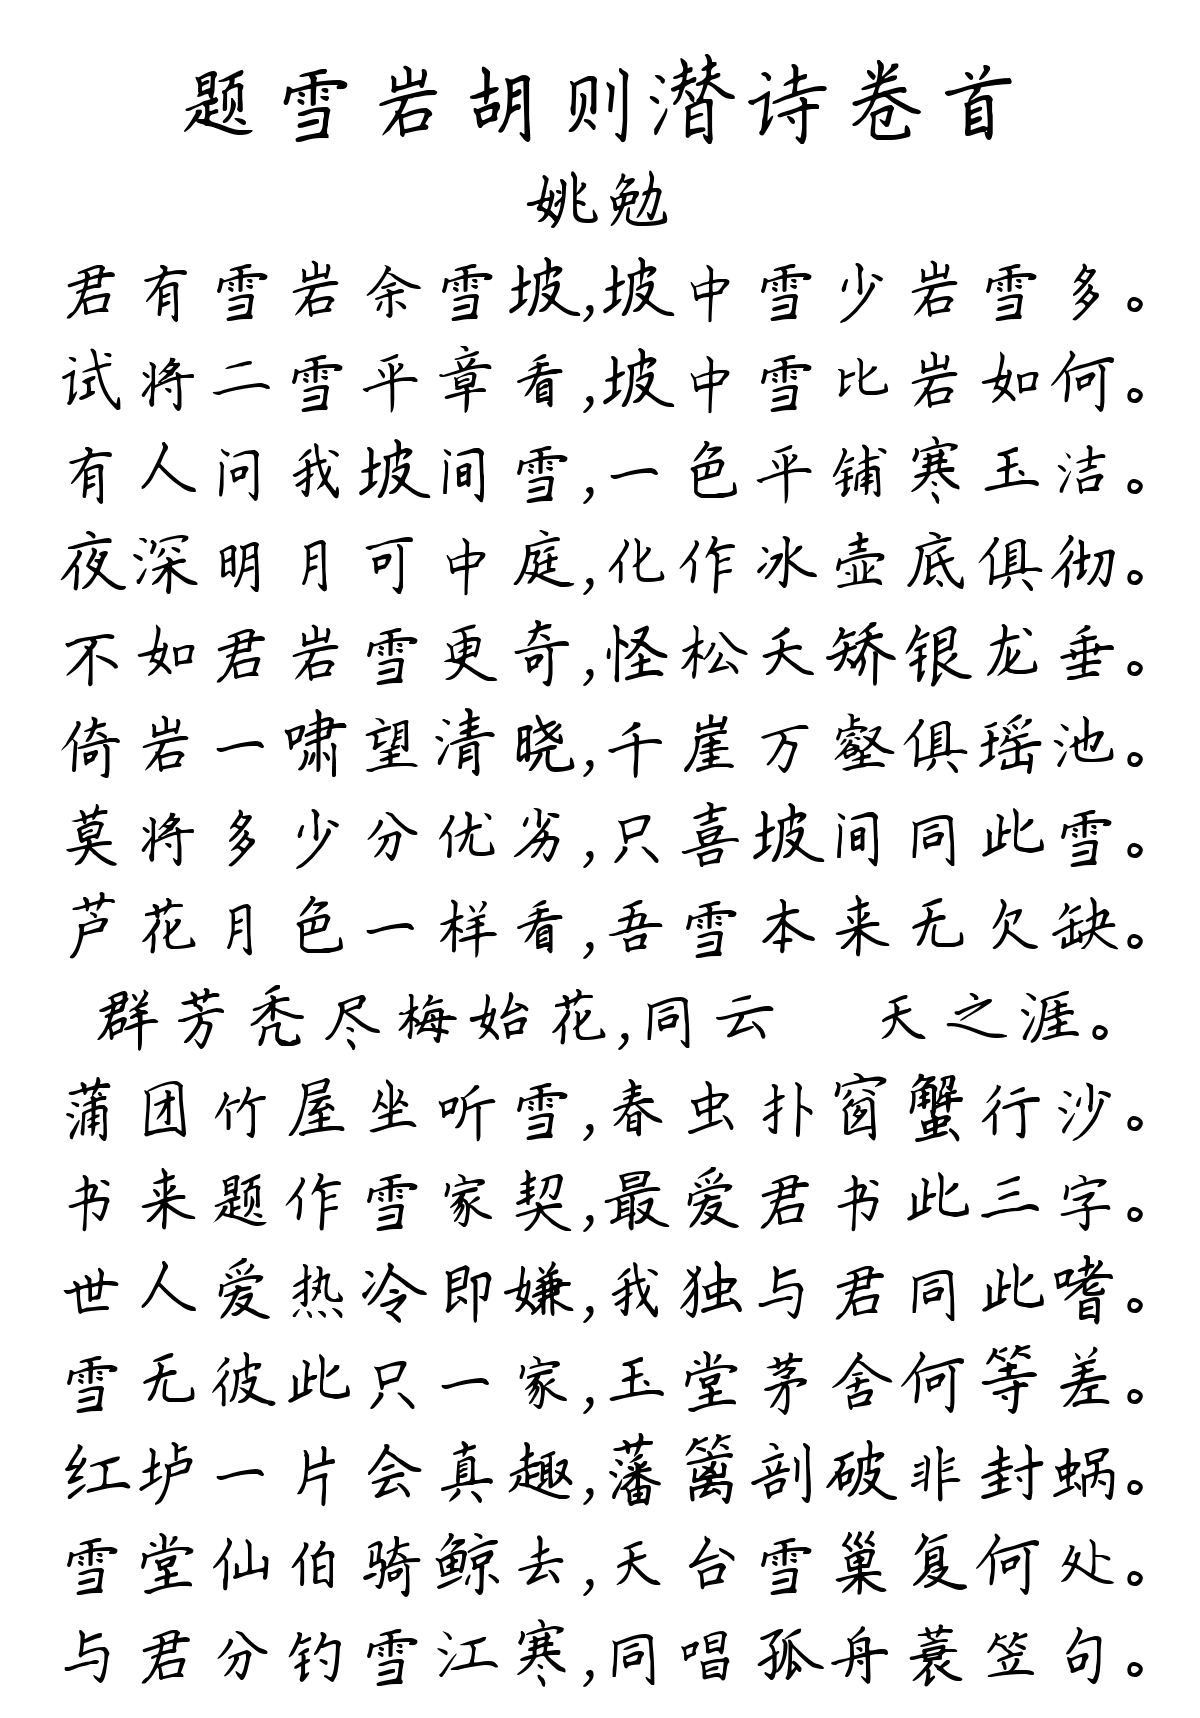 题雪岩胡则潜诗卷首
姚勉
君有雪岩余雪坡,坡中雪少岩雪多。
试将二雪平章看,坡中雪比岩如何。
有人问我坡间雪,一色平铺寒玉洁。
夜深明月可中庭,化作冰壶底俱彻。
不如君岩雪更奇,怪松夭矫银龙垂。
倚岩一啸望清晓,千崖万壑俱瑶池。
莫将多少分优劣,只喜坡间同此雪。
芦花月色一样看,吾雪本来无欠缺。
群芳秃尽梅始花,同云 天之涯。
蒲团竹屋坐听雪,春虫扑窗蟹行沙。
书来题作雪家契,最爱君书此三字。
世人爱热冷即嫌,我独与君同此嗜。
雪无彼此只一家,玉堂茅舍何等差。
红垆一片会真趣,藩篱剖破非封蜗。
雪堂仙伯骑鲸去,天台雪巢复何处。
与君分钓雪江寒,同唱孤舟蓑笠句。